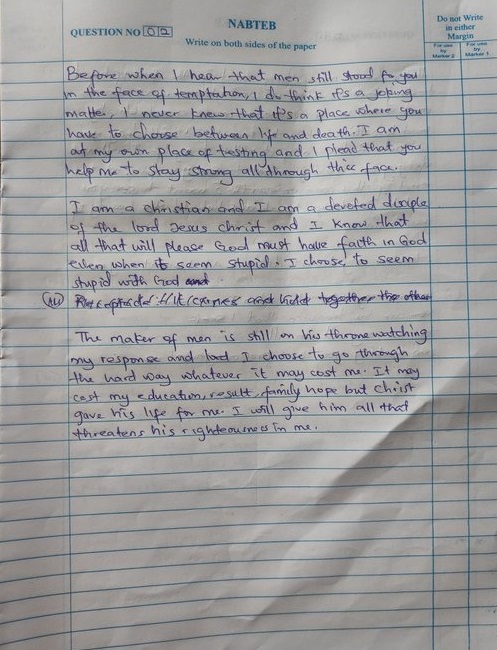 NABTEB
QUESTION NO 02
Write on both sides of the paper
Do not Write
in either
Margin
For use by Marker 2
For use by Marker 1
Before when I hear that men still stood for you
in the face of temptation, I do think it's a joking
matter, I never knew that it's a place where you
have to choose between life and death. I am
at my own place of testing and I plead that you
help me to stay strong all through this face.
I am a christian and I am a devoted disciple
of the lord Jesus christ and I know that
all that will please God must have faith in God
even when it seem stupid. I choose to seem
stupid with God and
and hold together the other
The maker of men is still on his throne watching
my response and lord I choose to go through
the hard way whatever it may cost me. It may
cost my education, result, family hope but christ
gave his life for me. I will give him all that
threatens his righteousness in me.